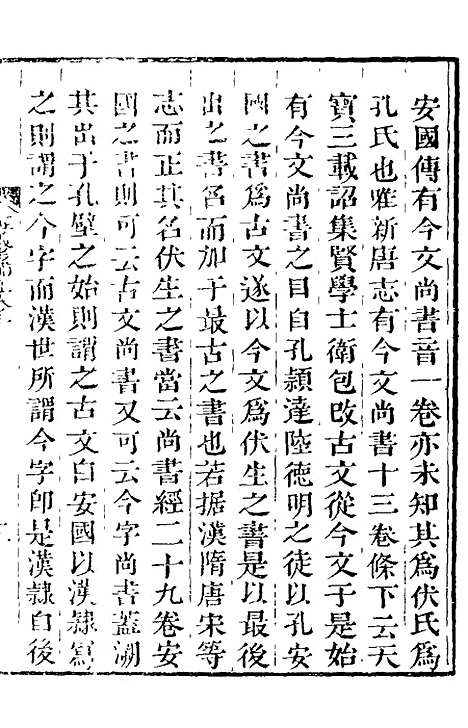 安國傳有今文尚書音一卷亦未知其爲伏氏爲
孔氏也雅新唐志有今文尚書十三卷條下云天
寶三載詔集賢學士衛包改古文從今文于是始
有今文尚書之目自孔頴逹陸徳明之徒以孔安
國之書爲古文遂以今文爲伏生之書是以最後
出之書名而加于最古之書也若据漢隋唐宋等
志而正其名伏生之書當云尚書經二十九卷安
國之書則可云古文尚書又可云今字尚書蓋溯
其出于孔壁之始則謂之古文自安國以漢隸寫
之則謂之今字而漢世所謂今字即是漢隸自後